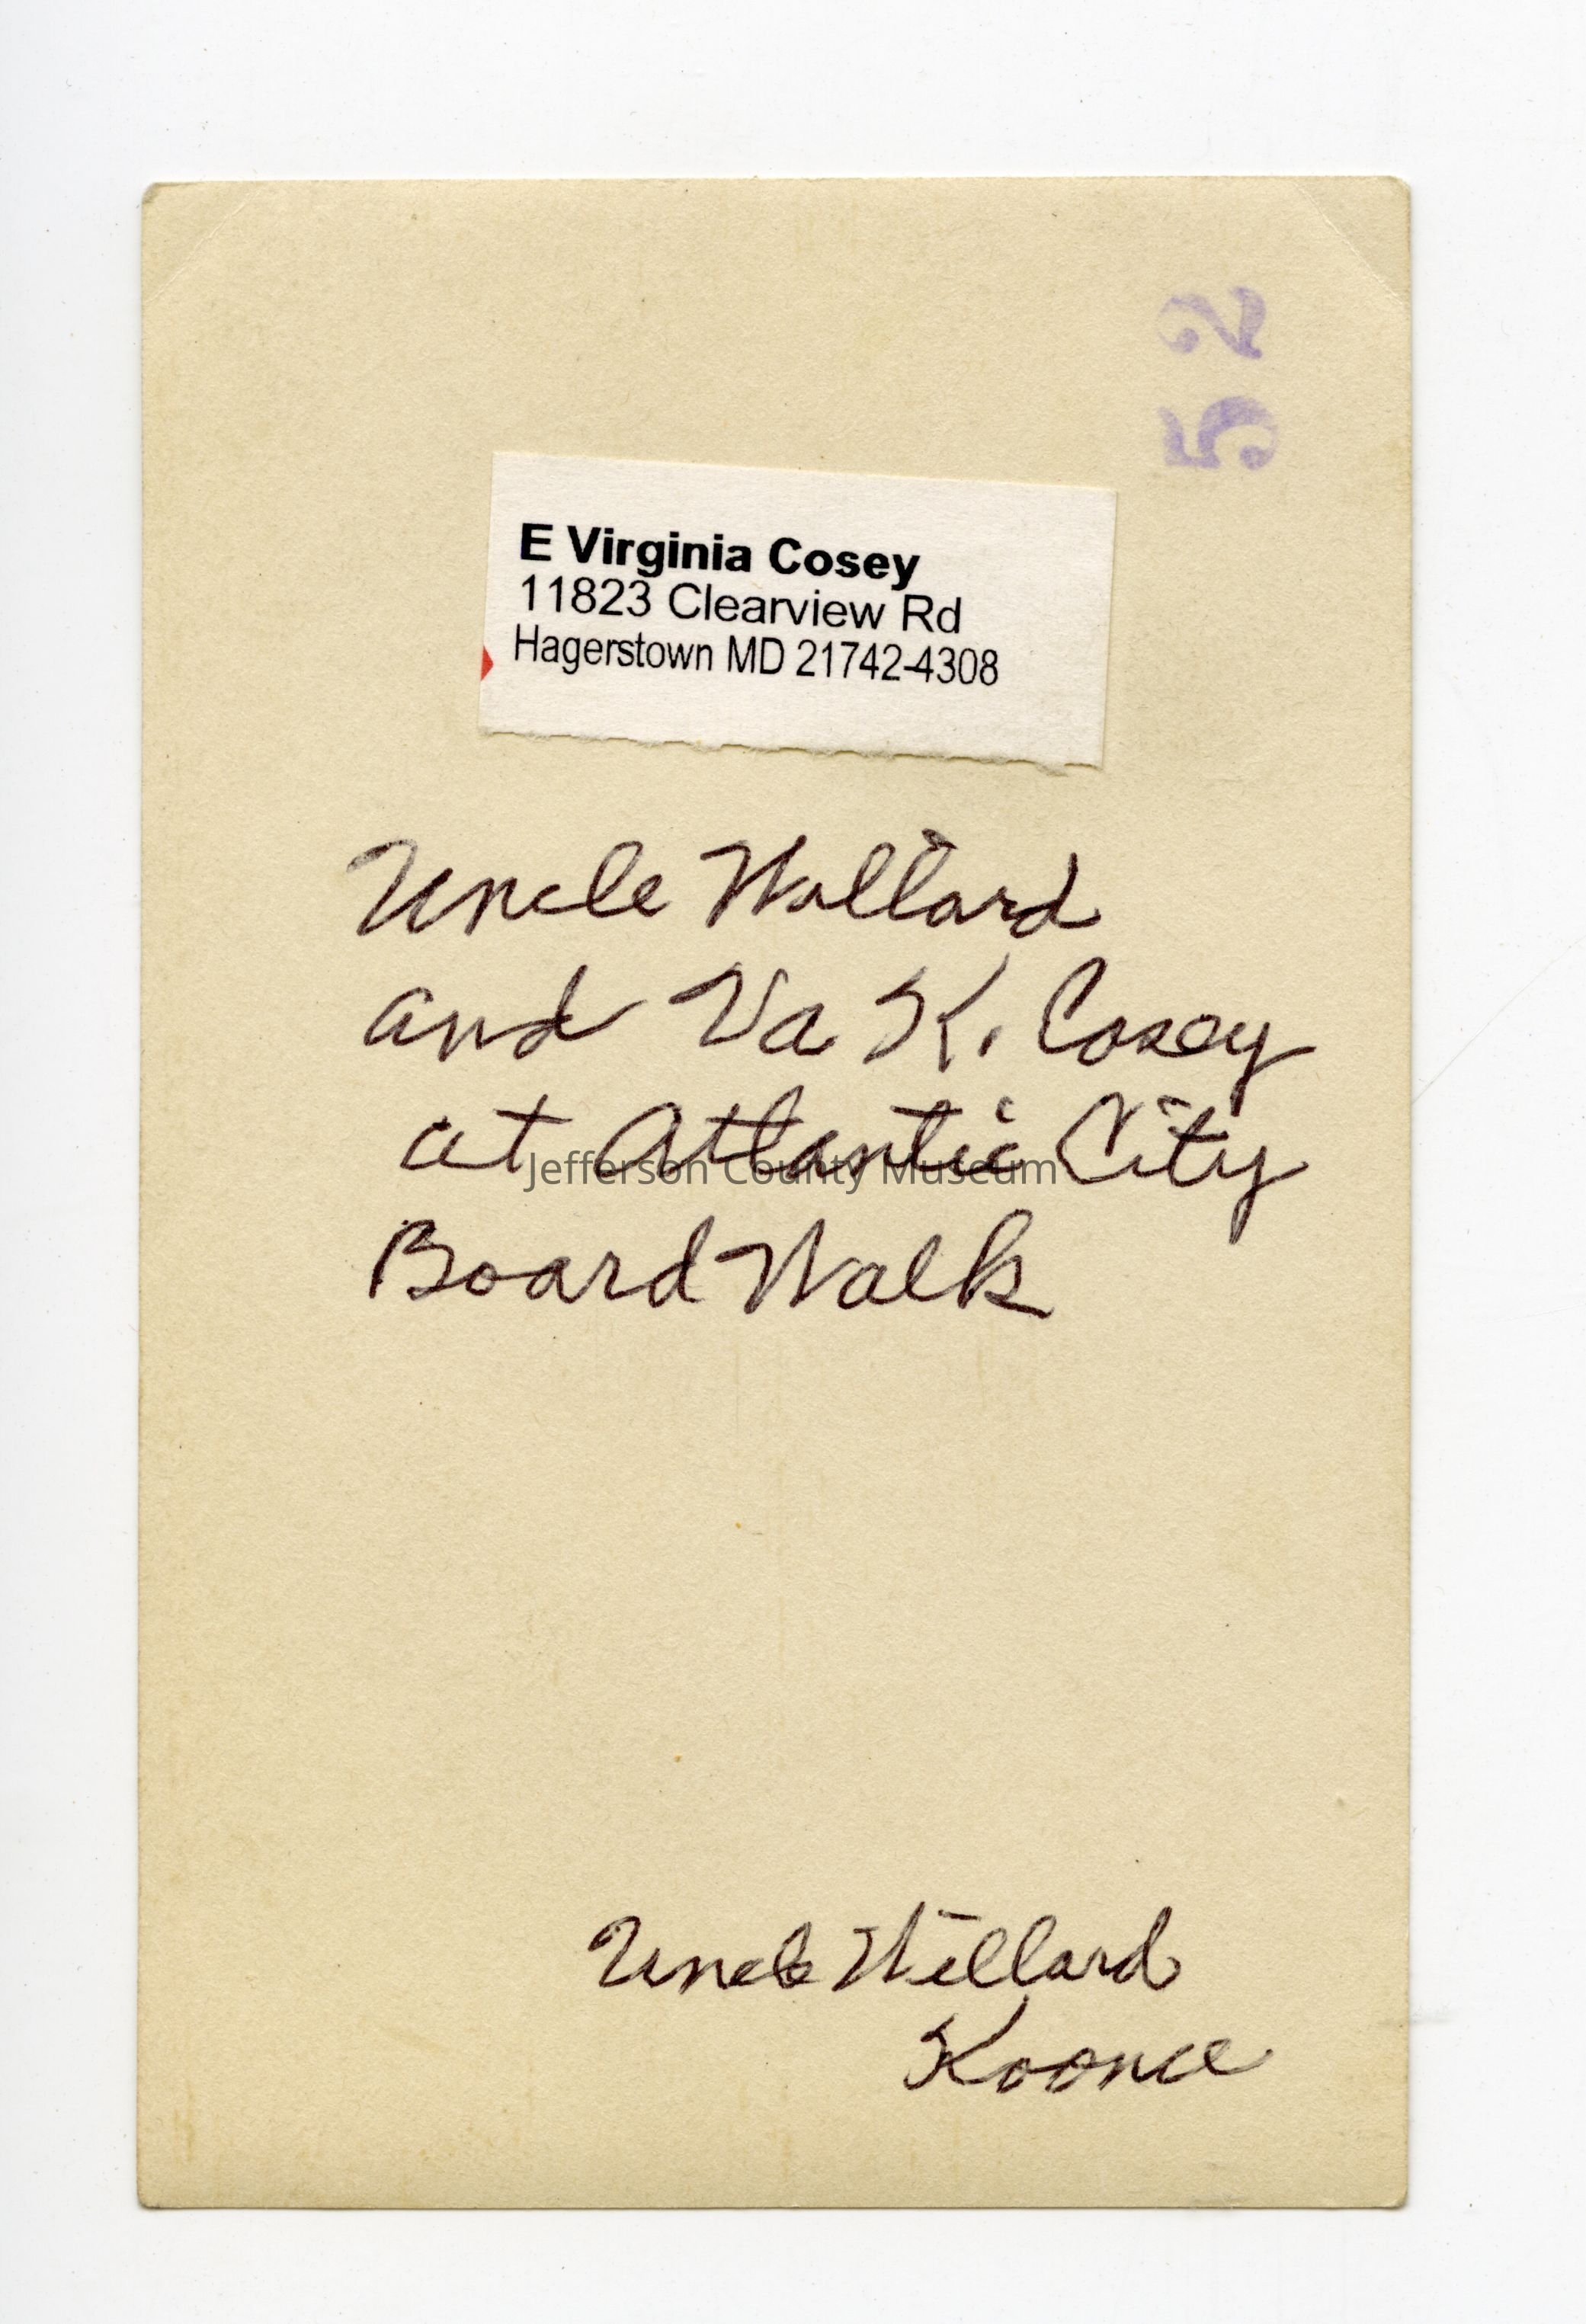 52
E Virginia Cosey
11823 Clearview Rd
Hagerstown MD 21742-4308
Uncle Willard
and Va K. Cosey
at Atlantic City
Jefferson County Museum
Board Walk
Uncle Willard
Koonce